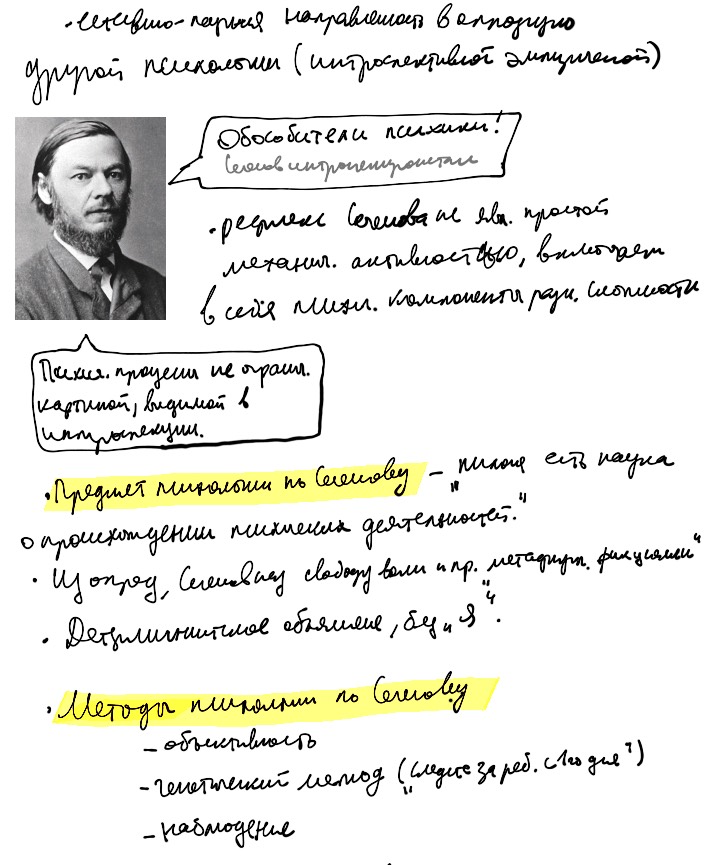 научная направленность в оппозицию
другой психологии (интроспективной эмпирической)
Обособители психики!
Сеченов интроспекционистам
• рефлекс Сеченова не явл. простой
механич. активностью, включает
в себя психич. компоненты разн. сложности
Психич. процессы не огранич.
картиной, видимой в
интроспекции.
• Предмет психологии по Сеченову – "психол есть наука
о происхождении психических деятельностей."
• Из опред. Сеченов свободу воли и пр. "метафизич. фикциями"
• Детерминистское объяснение, без "Я".
• Методы психологии по Сеченову
– объективность
– генетический метод ("следите за реб. с 1го дня")
– наблюдение